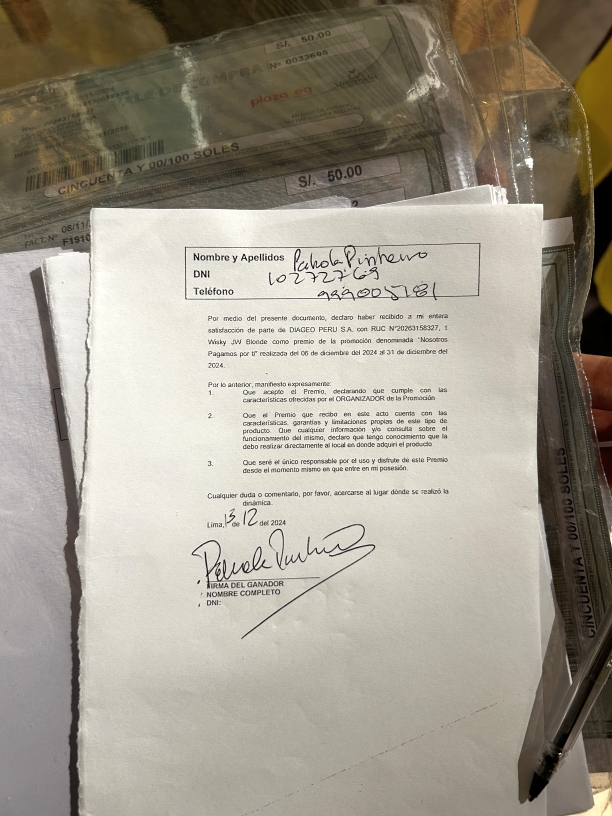 S/. 50.00
VALE DE COMPRA Nº 0033695
plaza
CINCUENTA Y 00/100 SOLES
S/. 50.00
08/11/
FACT. Nº F191
Nombre y Apellidos Pahola Pinheiro
DNI 10272769
Teléfono 999005781
Por medio del presente documento, declaro haber recibido a mi entera
satisfacción de parte de DIAGEO PERU S.A. con RUC N°20263158327, 1
Wisky JW Blonde como premio de la promoción denominada "Nosotros
Pagamos por ti" realizada del 06 de diciembre del 2024 al 31 de diciembre del
2024.
Por lo anterior, manifiesto expresamente:
1. Que acepto el Premio, declarando que cumple con las
características ofrecidas por el ORGANIZADOR de la Promoción
2. Que el Premio que recibo en este acto cuenta con las
características, garantías y limitaciones propias de este tipo de
producto. Que cualquier información y/o consulta sobre el
funcionamiento del mismo, declaro que tengo conocimiento que la
debo realizar directamente al local en donde adquirí el producto
3. Que seré el único responsable por el uso y disfrute de este Premio
desde el momento mismo en que entre en mi posesión.
Cualquier duda o comentario, por favor, acercarse al lugar dónde se realizó la
dinámica.
Lima, 13 de 12 del 2024
FIRMA DEL GANADOR
NOMBRE COMPLETO
DNI:
CINCUENTA Y 00/100 SOLES